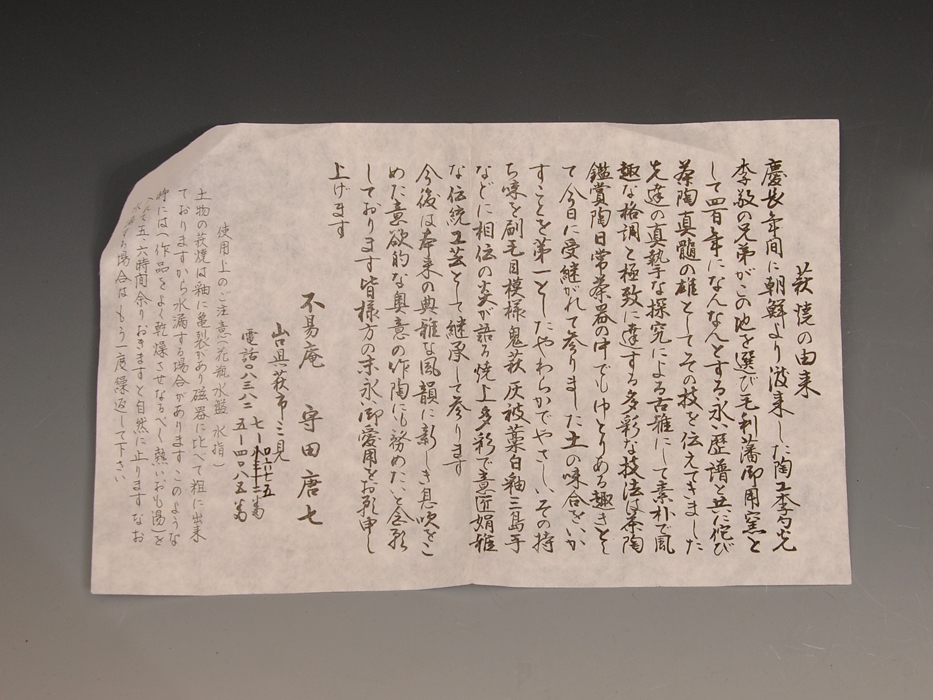 萩焼の由来
慶長年間に朝鮮より渡来した陶工李勺光
李敬の兄弟がこの地を選び毛利藩御用窯と
して四百年になんなんとする永い歴譜と共に侘び
茶陶真髄の雄としてその技を伝えてきました
先達の真摯な探究による古雅にして素朴で風
趣な格調と極致に達する多彩な技法は茶陶
鑑賞陶日常茶器の中でもゆとりある趣きとし
て今日に受継がれて参りました土の味合をいか
すことを第一としたやわらかでやさしいその持
ち味を刷毛目模様鬼萩灰被藁白釉三島手
などに相伝の炎が語る焼上多彩で意匠娟雅
な伝統工芸として継承して参ります
今後は本来の典雅な風韻に新しき息吹をこ
めた意欲的な奥意の作陶にも務めたいと念願
しております皆様方の末永い御愛用をお願申し
上げます
不易庵 守田唐七
山口県萩市三見
電話〇八三八二 七ー〇六七五
五ー四〇八五番
使用上のご注意(花瓶水盤水指)
土物の萩焼は釉に亀裂があり磁器に比べて粗に出来
ておりますから水漏する場合がありますこのような
時には(作品をよく乾燥させなるべく熱いおも湯)を
五、六時間余りおきますと自然に止りますなお
場合はもう一度繰返して下さい